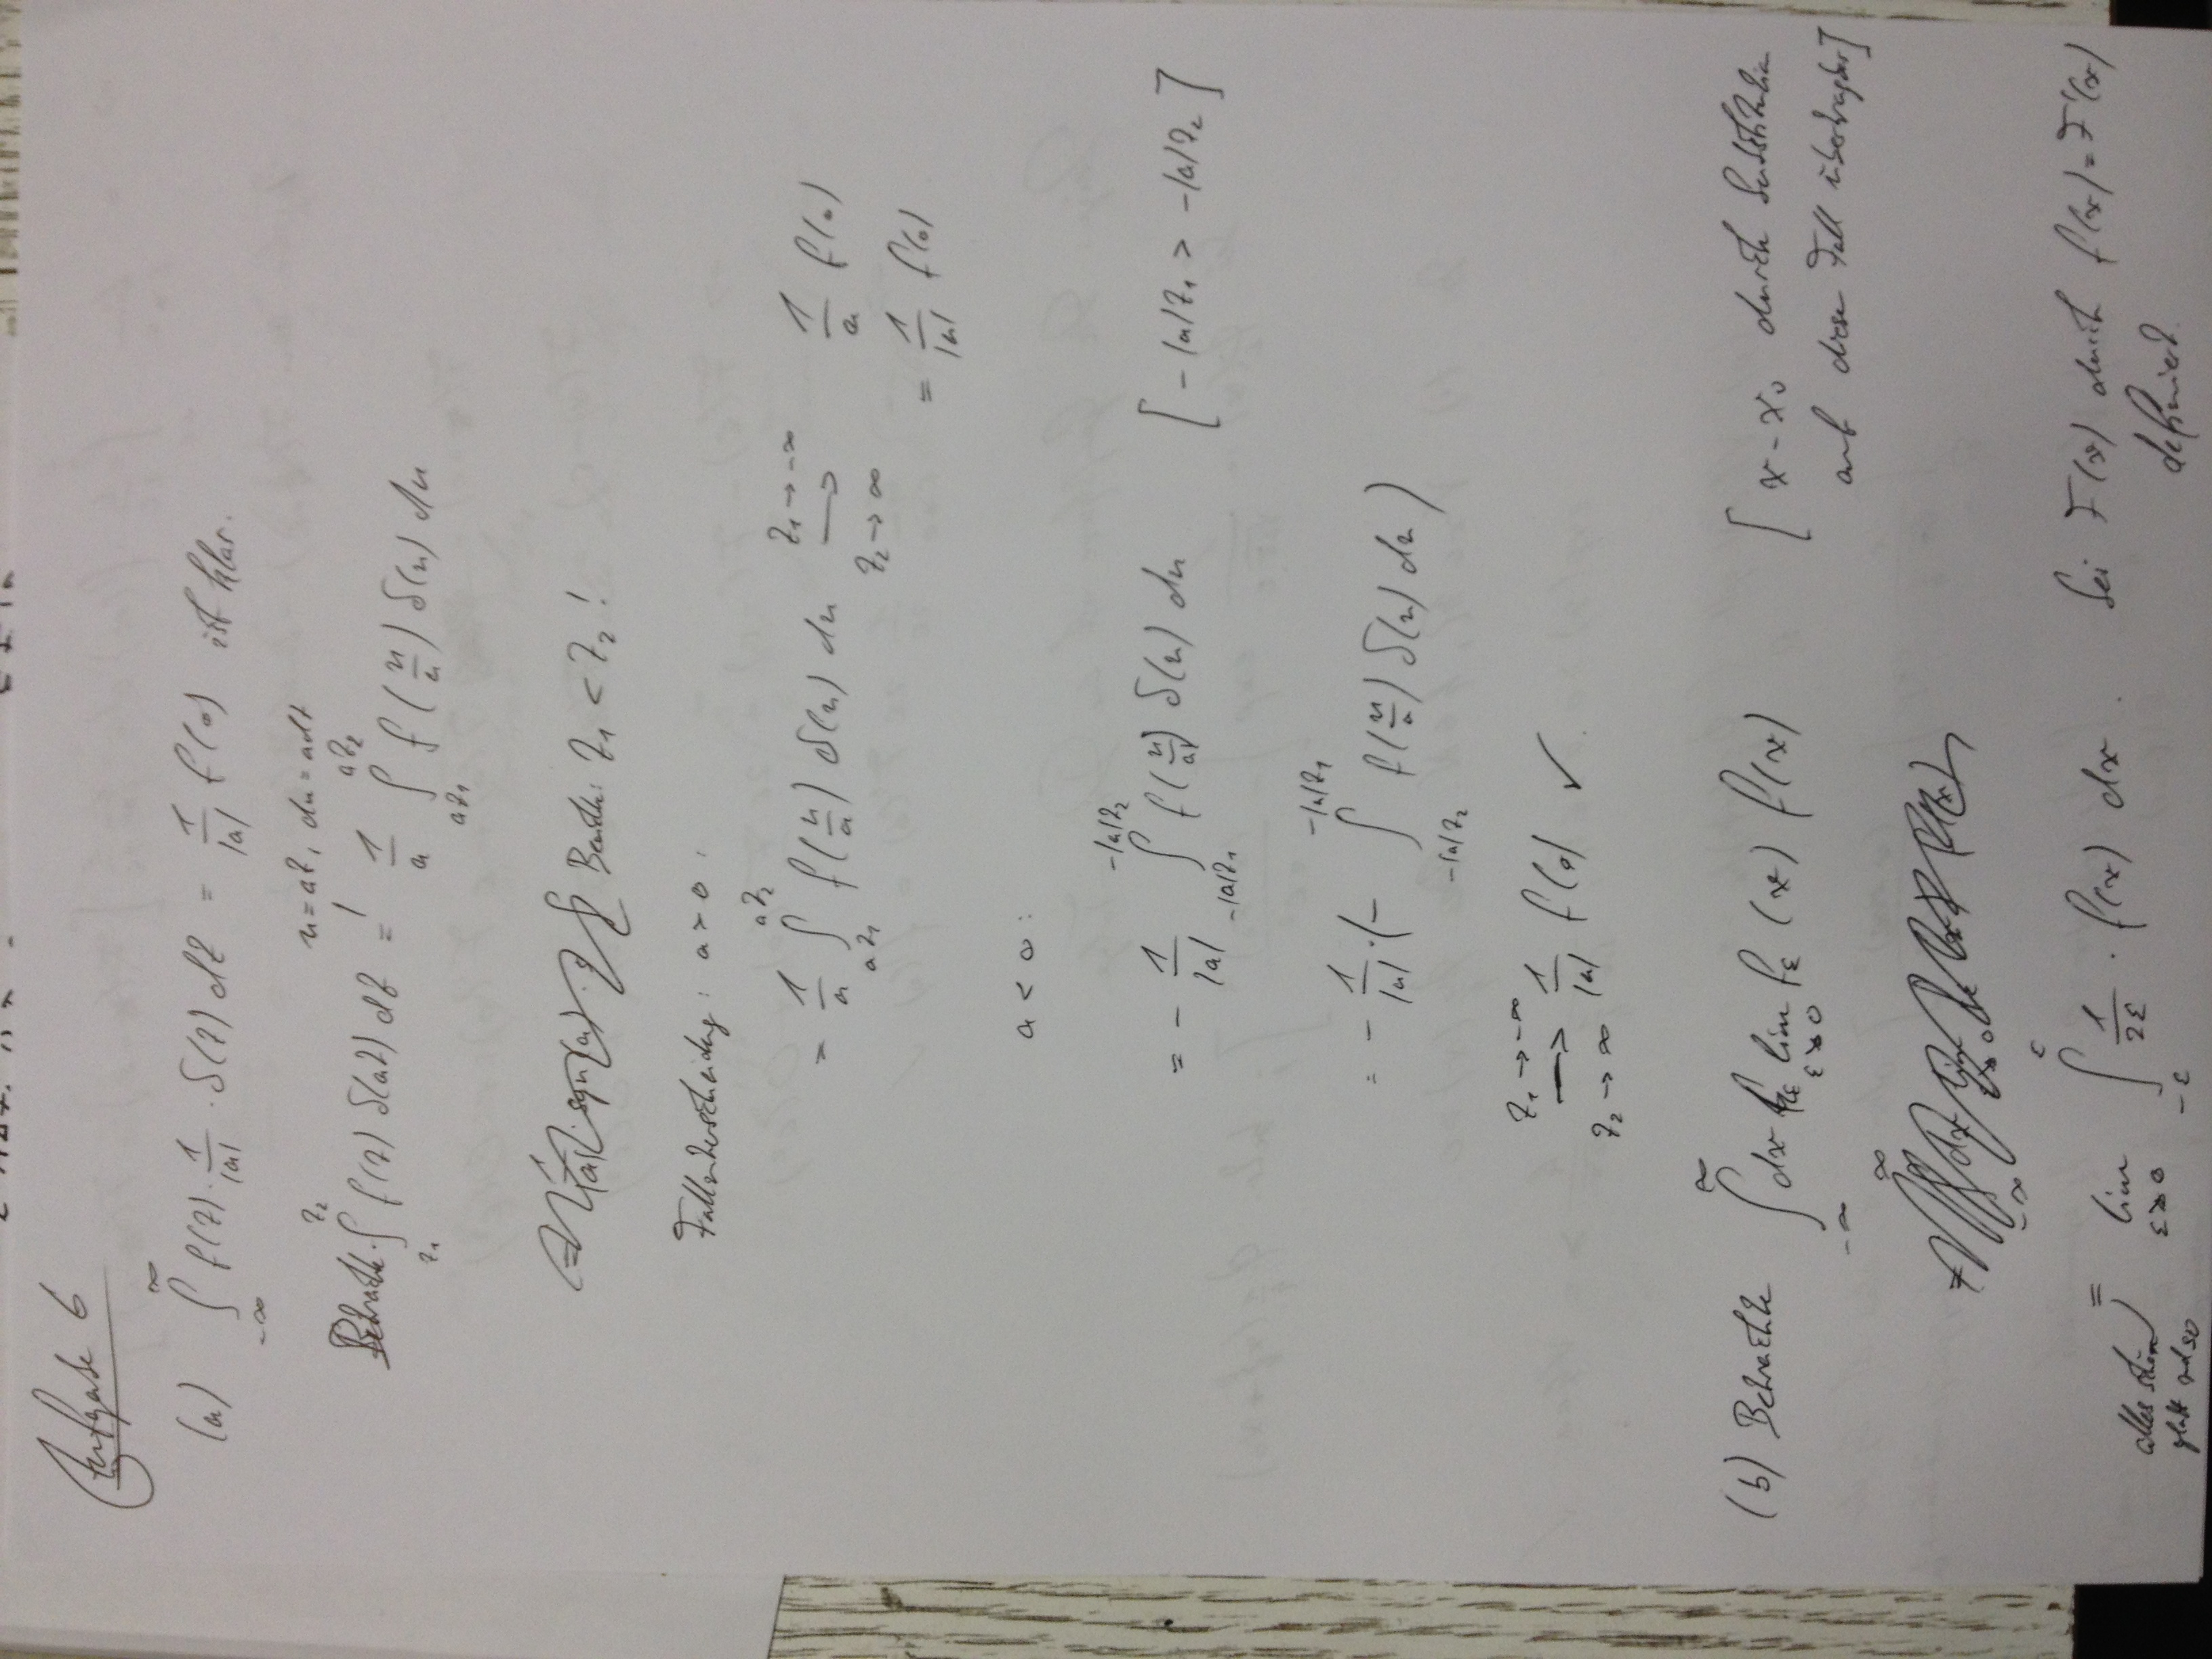 Aufgabe 6
(a) ∫_{-∞}^{∞} f(z) · 1/|a| · δ(z) dz = 1/|a| f(0) ist klar.
u = az, du = adz
Betrachte ∫_{z₁}^{z₂} f(z) δ(az) dz = 1/a ∫_{az₁}^{az₂} f(u/a) δ(u) du
Beachte: z₁ < z₂ !
Fallunterscheidung: a > 0 :
= 1/a ∫_{az₁}^{az₂} f(u/a) δ(u) du → (z₁ → -∞, z₂ → ∞) 1/a f(0)
= 1/|a| f(0)
a < 0 :
= - 1/|a| ∫_{-|a|z₁}^{-|a|z₂} f(u/a) δ(u) du [ -|a|z₁ > -|a|z₂ ]
= - 1/|a| · (- ∫_{-|a|z₂}^{-|a|z₁} f(u/a) δ(u) du )
→ (z₁ → -∞, z₂ → ∞) 1/|a| f(0) ✓
(b) Betrachte ∫_{-∞}^{∞} dx lim_{ε↘0} f_ε (x) f(x) [ x - x₀ durch Substitution
auf diesen Fall übertragbar ]
alles schön glatt und so = lim_{ε↘0} ∫_{-ε}^{ε} 1/2ε · f(x) dx . Sei F(x) durch f(x) = F'(x)
definiert.